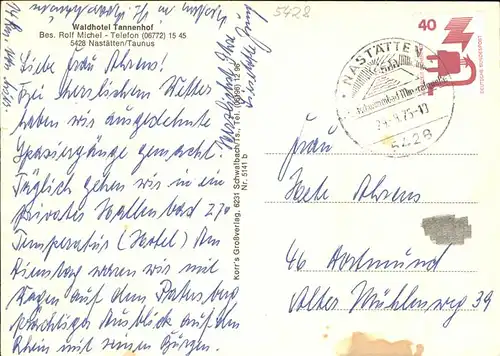 5428
Waldhotel Tannenhof
Bes. Rolf Michel - Telefon (06772) 15 45
5428 Nastätten/Taunus
Liebe Frau Ahrens!
Bei herrlichem Wetter
haben wir ausgedehnte
Spaziergänge gemacht.
Täglich gehen wir in ein
privates Hallenbad 27°
Temperatur (Hotel) Am
Dienstag waren wir mit
Wagen auf dem
prächtiger Ausblick auf den
Rhein mit seinen Burgen.
Korr's Großverlag, 6231 Schwalbach/Ts., Tel. (06196) 12 96
Nr. 5141 b
40
DEUTSCHE BUNDESPOST
NASTÄTTEN
5428
Frau
Hete Ahrens
46 Dortmund
Alter Mühlenweg 39